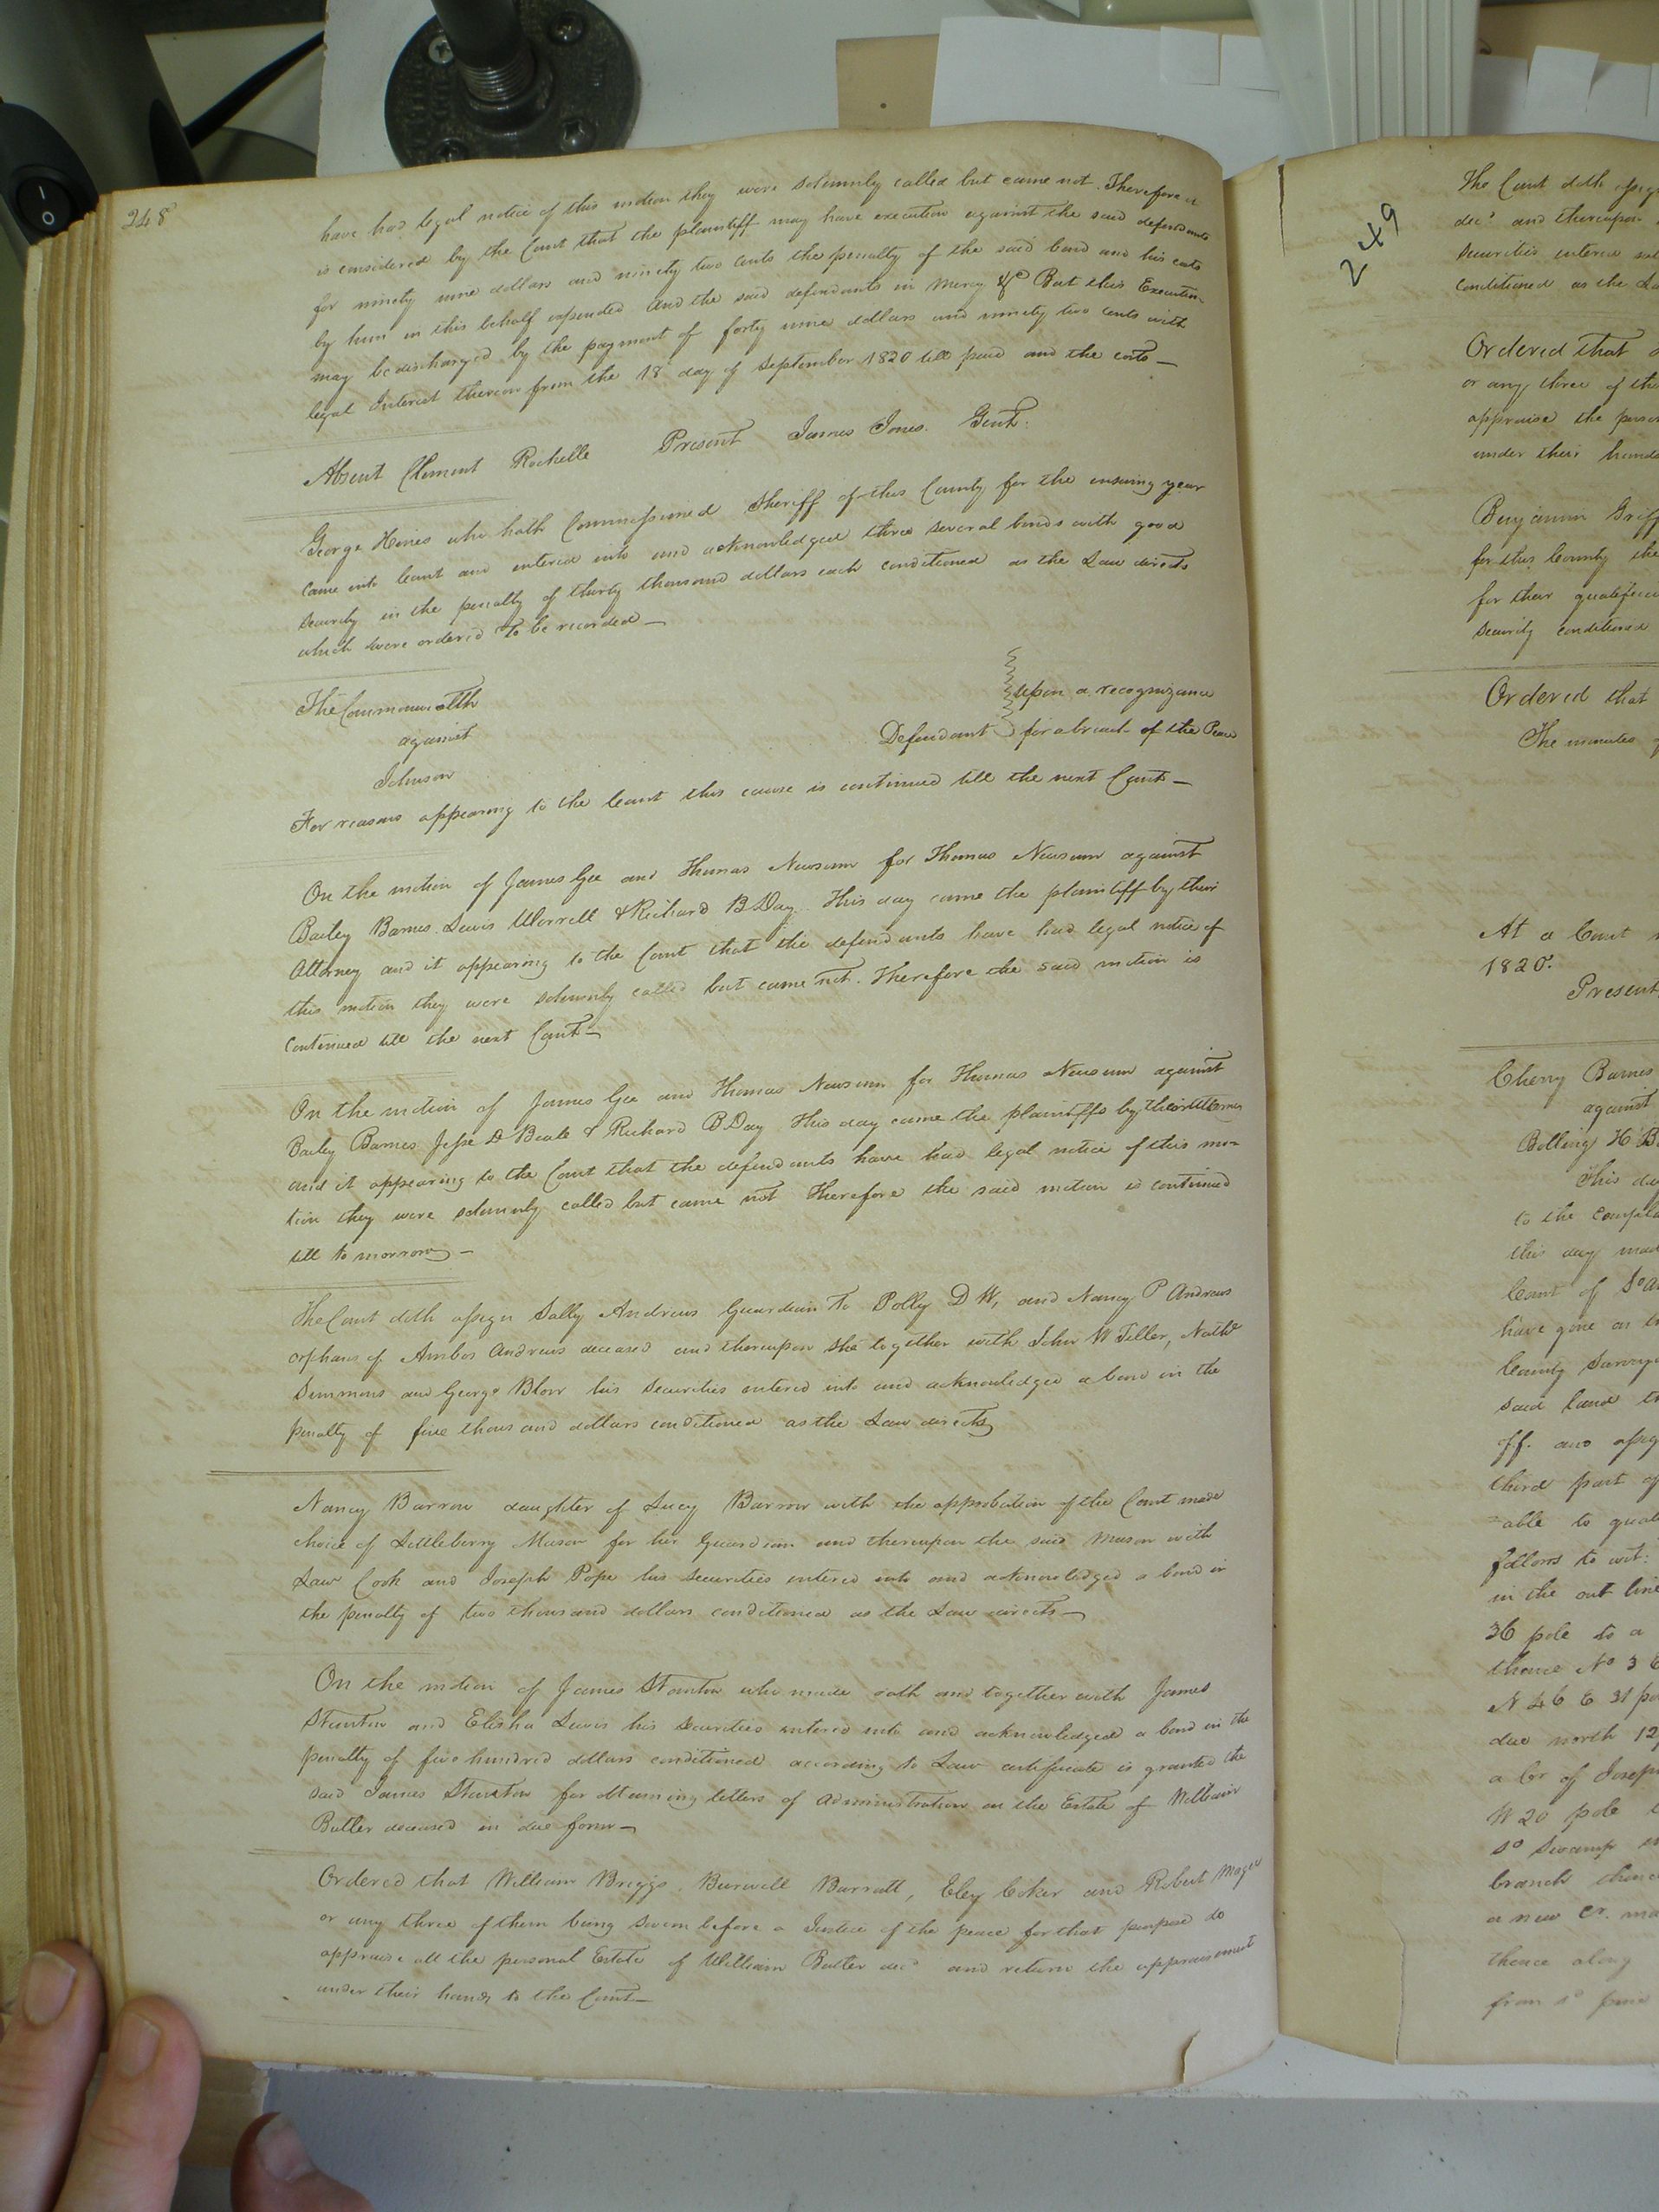 248
have had legal notice of this motion they were solemnly called but came not. Therefore it
is considered by the Court that the plaintiff may have execution against the said defendants
for ninety nine dollars and ninety two cents the penalty of the said bond and his costs
by him in this behalf expended and the said defendants in mercy &c But this Execution
may be discharged by the payment of forty nine dollars and ninety two cents with
legal Interest thereon from the 18 day of September 1820 till paid and the costs—
Absent Clement Rochelle Present James Jones. Gent.
George Hines who hath Commissioned Sheriff of this County for the ensuing year
Came into Court and entered into and acknowledged three several bonds with good
security in the penalty of thirty thousand dollars each conditioned as the Law directs
which were ordered to be recorded—
The Commonwealth
against
Johnson
Defendant
upon a recognizance
for a breach of the Peace
For reasons appearing to the Court this cause is continued till the next Court—
On the motion of James Gee and Thomas Newsum for Thomas Newsum against
Bailey Barnes. Lewis Worrell & Richard B Day. This day came the plaintiff by their
Attorney and it appearing to the Court that the defendants have had legal notice of
this motion they were solemnly called but came not. Therefore the said motion is
Continued till the next Court—
On the motion of James Gee and Thomas Newsum for Thomas Newsum against
Bailey Barnes Jesse D Beale & Richard B Day This day came the plaintiffs by their Attorney
and it appearing to the Court that the defendants have had legal notice of this mo=
tion they were solemnly called but came not Therefore the said motion is continued
till to morrow—
The Court doth assign Sally Andrews Guardian To Polly D W, and Nancy P Andrews
orphans of Andrews deceased and thereupon she together with John W Teller, Nathl
Simmons and George Blow his securities entered into and acknowledged a bond in the
penalty of five thousand dollars conditioned as the Law directs
Nancy Barrow daughter of Lucy Barrow with the approbation of the Court made
choice of Littleberry Mason for her Guardian and thereupon the said Mason with
Law Cook and Joseph Pope his securities entered into and acknowledged a bond in
the penalty of two thousand dollars conditioned as the Law directs—
On the motion of James Stanton who made oath and together with James
Stanton and Elisha Lewis his securities entered into and acknowledged a bond in the
penalty of five hundred dollars conditioned according to Law certificate is granted the
said James Stanton for obtaining letters of Administration on the Estate of William
Butler deceased in due form—
Ordered that William Briggs, Burwell Barrott, Eley Coker and Robert Magee
or any three of them being sworn before a Justice of the peace for that purpose do
appraise all the personal Estate of William Butler decd and return the appraisement
under their hands to the Court—
249
The Court doth
decd and thereupon
securities entered
conditioned as the
Ordered that
or any three of
appraise the
under their hands
Benjamin
for this County the
for their
security conditioned
Ordered that
The minutes
At a Court
1820.
Present
Cherry Barnes
against
Bolling H
This day
to the
this day
Court of
have gone on
County
said land
off. and
third part of
=able to
follows to wit:
in the out line
36 pole to a
thence No 3
N 46 E 31
due north 12
a Cr of
W 20 pole
sd swamp
branch thence
a new Cr.
thence along
from sd